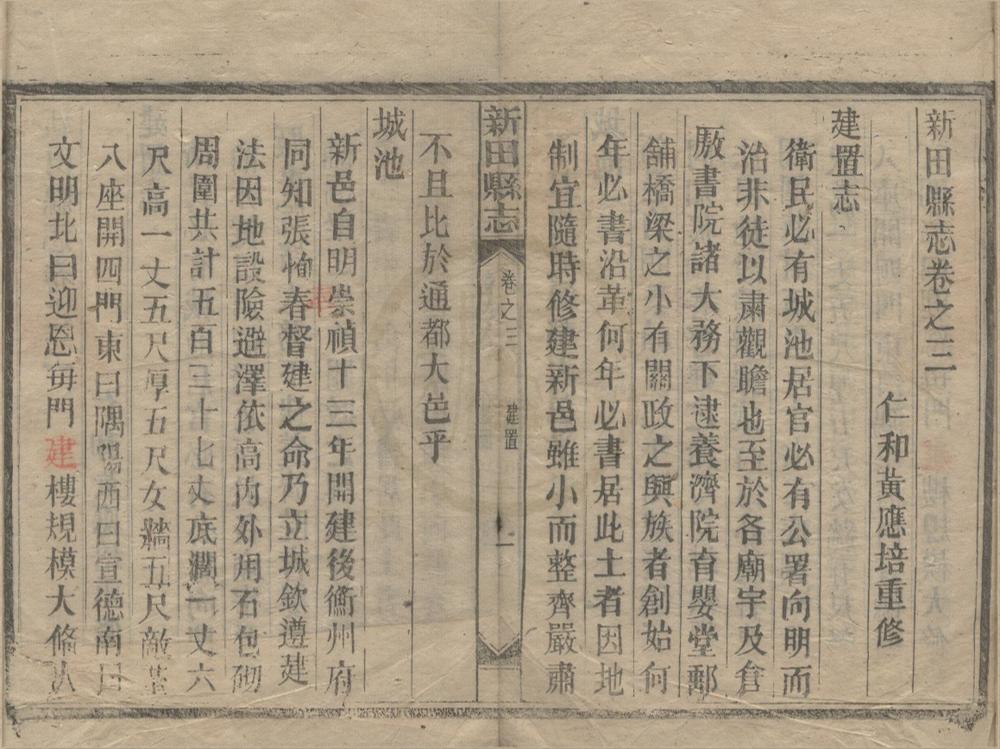 新田縣志卷之三
仁和黃應培重修
建置志
衛民必有城池居官必有公署向明而
治非徒以肅觀瞻也至於各廟宇及倉
廒書院諸大務下逮養濟院育嬰堂郵
舖橋梁之小有關政之興族者創始何
年必書沿革何年必書居此土者因地
制宜隨時修建新邑雖小而整齊嚴肅
新田縣志
卷之三
建置
一
不且比於通都大邑乎
城池
新邑自明崇禎十三年開建後衡州府
同知張恂春督建之命乃立城欽遵建
法因地設險避澤依高內外用石包砌
周圍共計五百三十七丈底濶一丈六
尺高一丈五尺厚五尺女牆五尺敵臺
八座開四門東曰隅陽西曰宣德南曰
文明北曰迎恩每門建樓規模大俻